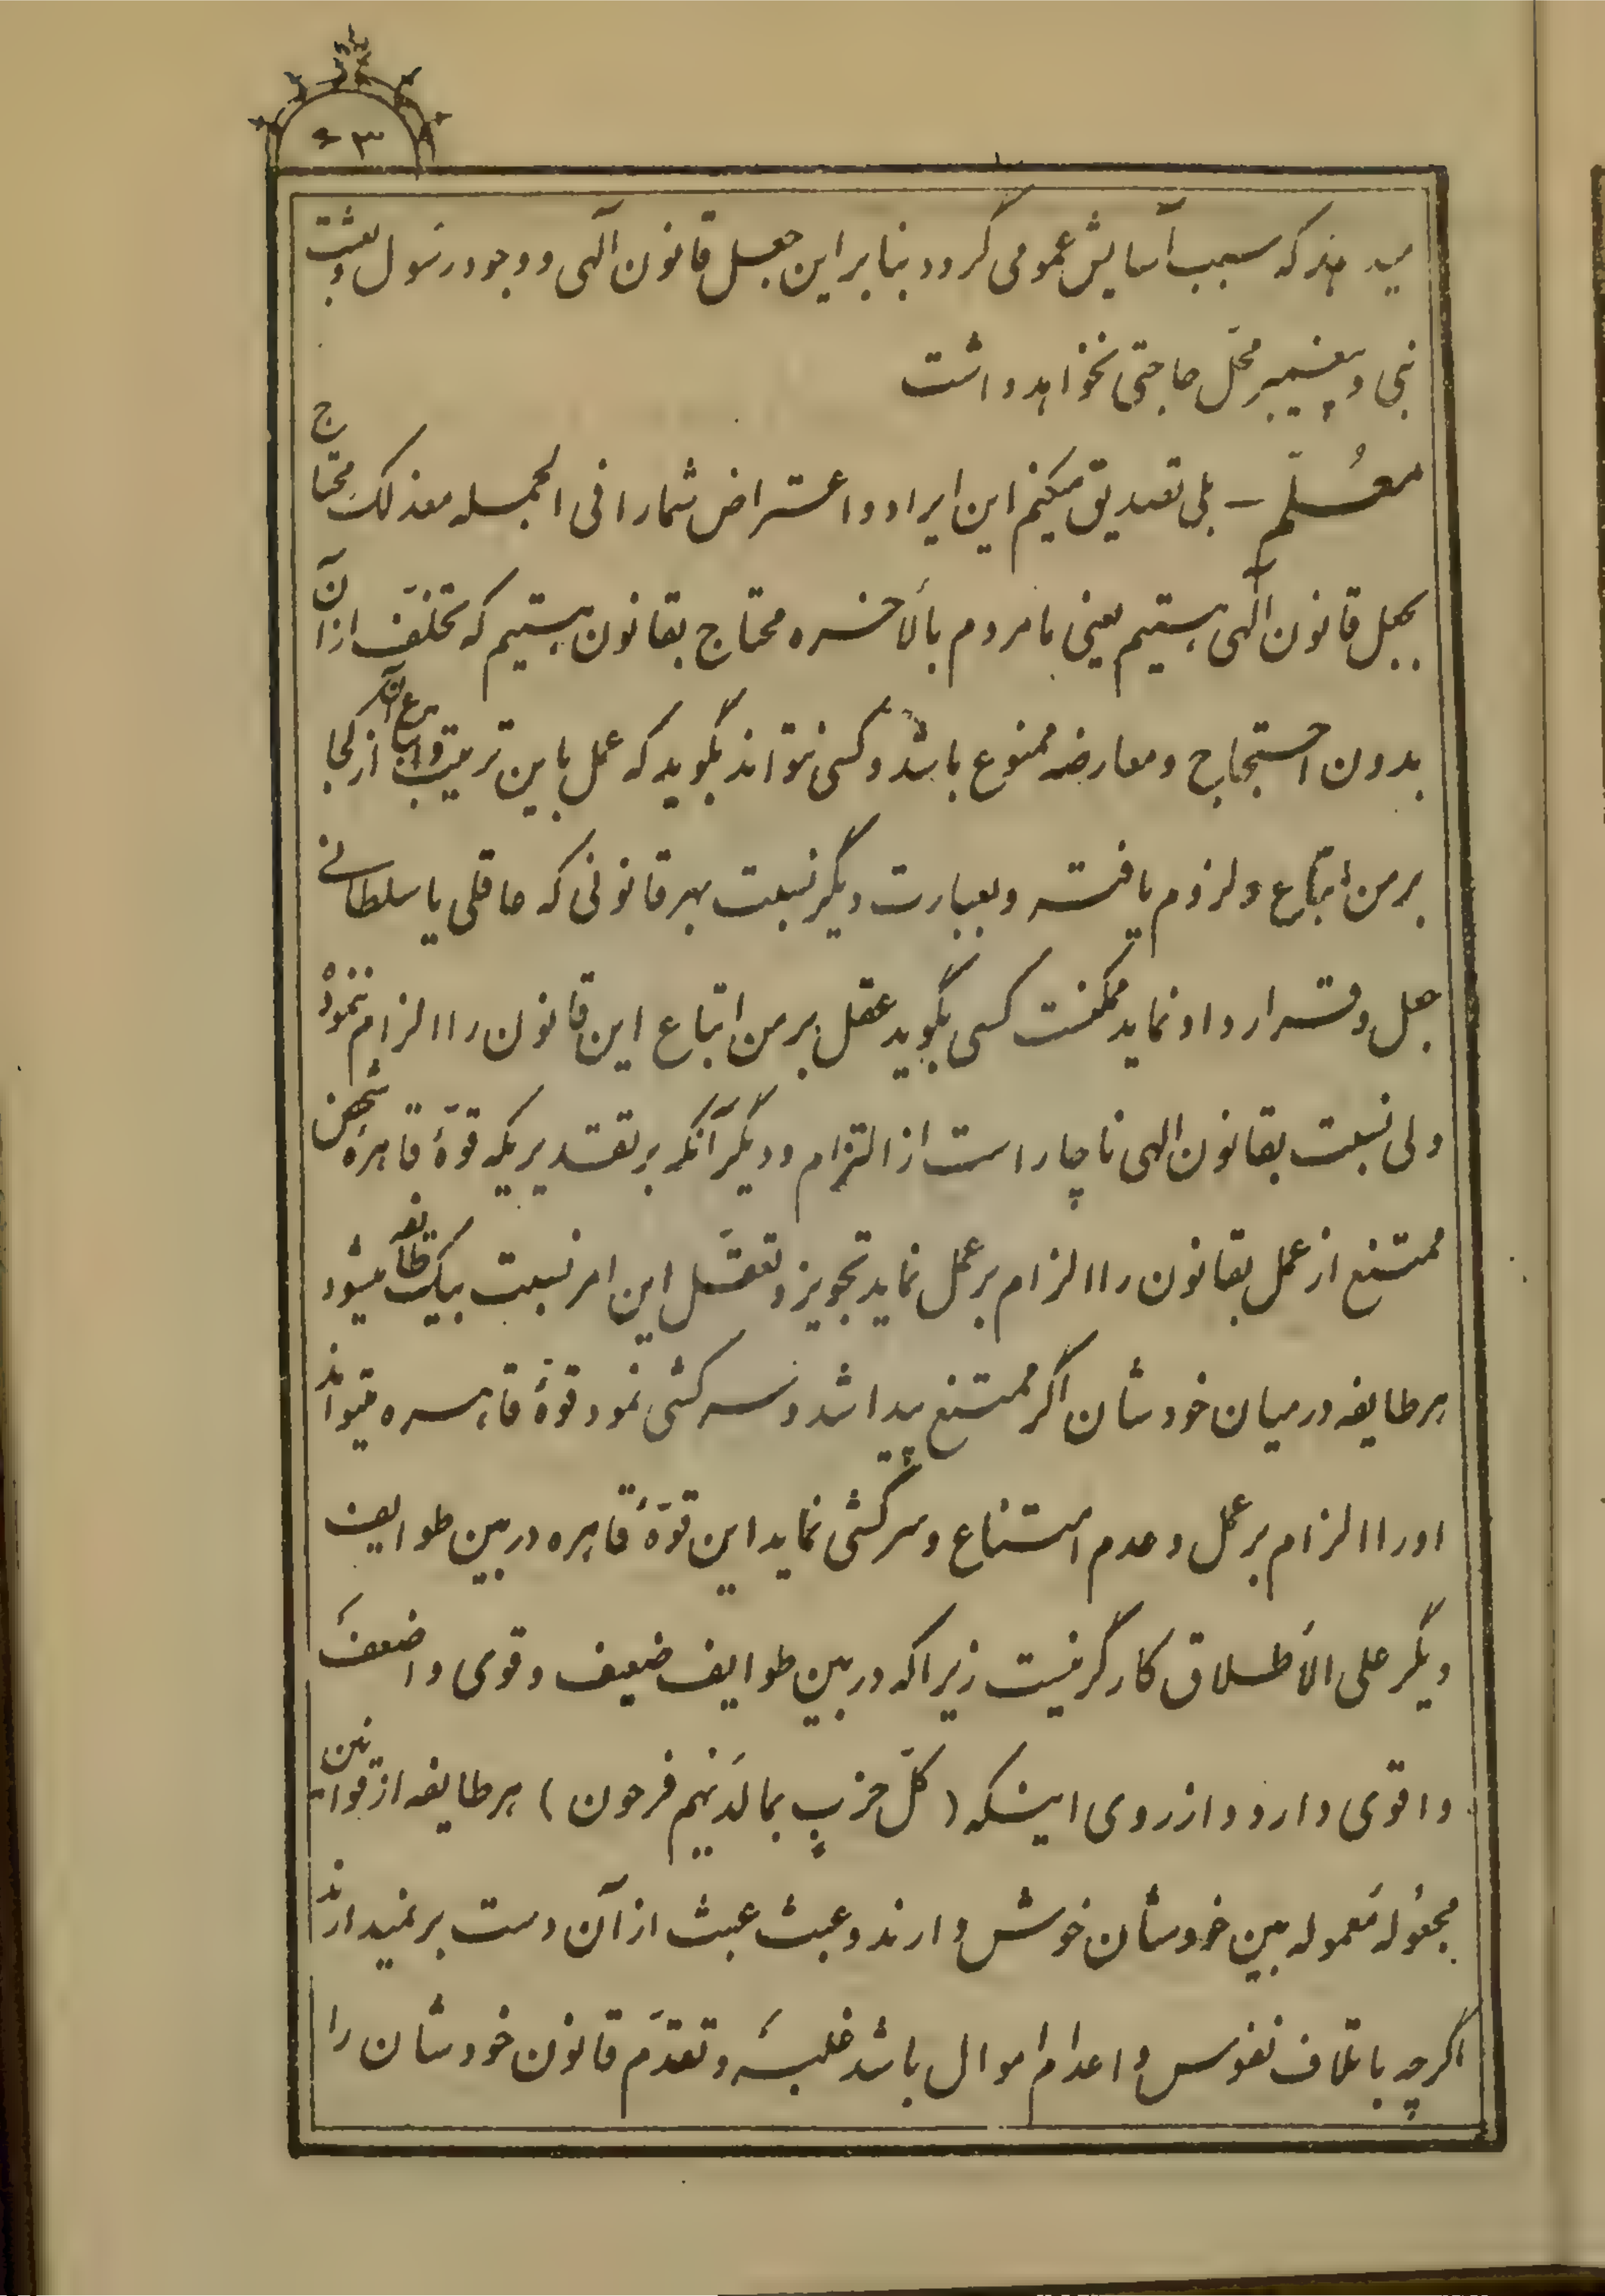 ۶۳
میدهند که سبب آسایش عمومی گردد بنا براین جعل قانون آلهی و وجود رسول و بعثت
نبی و پیغمبر محل حاجتی نخواهد داشت
معُلّم – بلی تصدیق میکنم این ایراد و اعتراض شما را فی الجمله معذلک محتاج
بجعل قانون آلهی هستیم یعنی ما مردم بالأخره محتاج بقانون هستیم که تخلّف ازان
بدون احتجاج و معارضه ممنوع باشد و کسی نتواند بگوید که عمل باین ترتیب و اتباع آن از کجا
بر من اتباع و لزوم یافته و بعبارت دیگر نسبت بهر قانونی که عاقلی یا سلطانی
جعل و قرارداد نماید ممکنست کسی بگوید عقل بر من اتباع این قانون را الزام ننموده
ولی نسبت بقانون الهی ناچار است از التزام و دیگر آنکه بر تقدیریکه قوّهٔ قاهرهٔ شخص
ممتنع از عمل بقانون را الزام بر عمل نماید تجویز و تعقّل این امر نسبت بیک طائفه میشود
هر طایفه در میان خودشان اگر ممتنع پیدا شد و سرکشی نمود قوّهٔ قاهره میتواند
او را الزام بر عمل و عدم امتناع و سرکشی نماید این قوّهٔ قاهره در بین طوایف
دیگر علی الأطلاق کارگر نیست زیرا که در بین طوایف ضعیف و قوی و اضعف
و اقوی دارد و از روی اینکه (کلّ حزبٍ بما لَدَیهم فرحون) هر طایفه از قوانین
مجعوله مَعموله بین خودشان خوش دارند و عبث عبث از آن دست برنمیدارند
اگرچه باتلاف نفوس و اعدام اموال باشد غلبهٔ و تقدّم قانون خودشان را